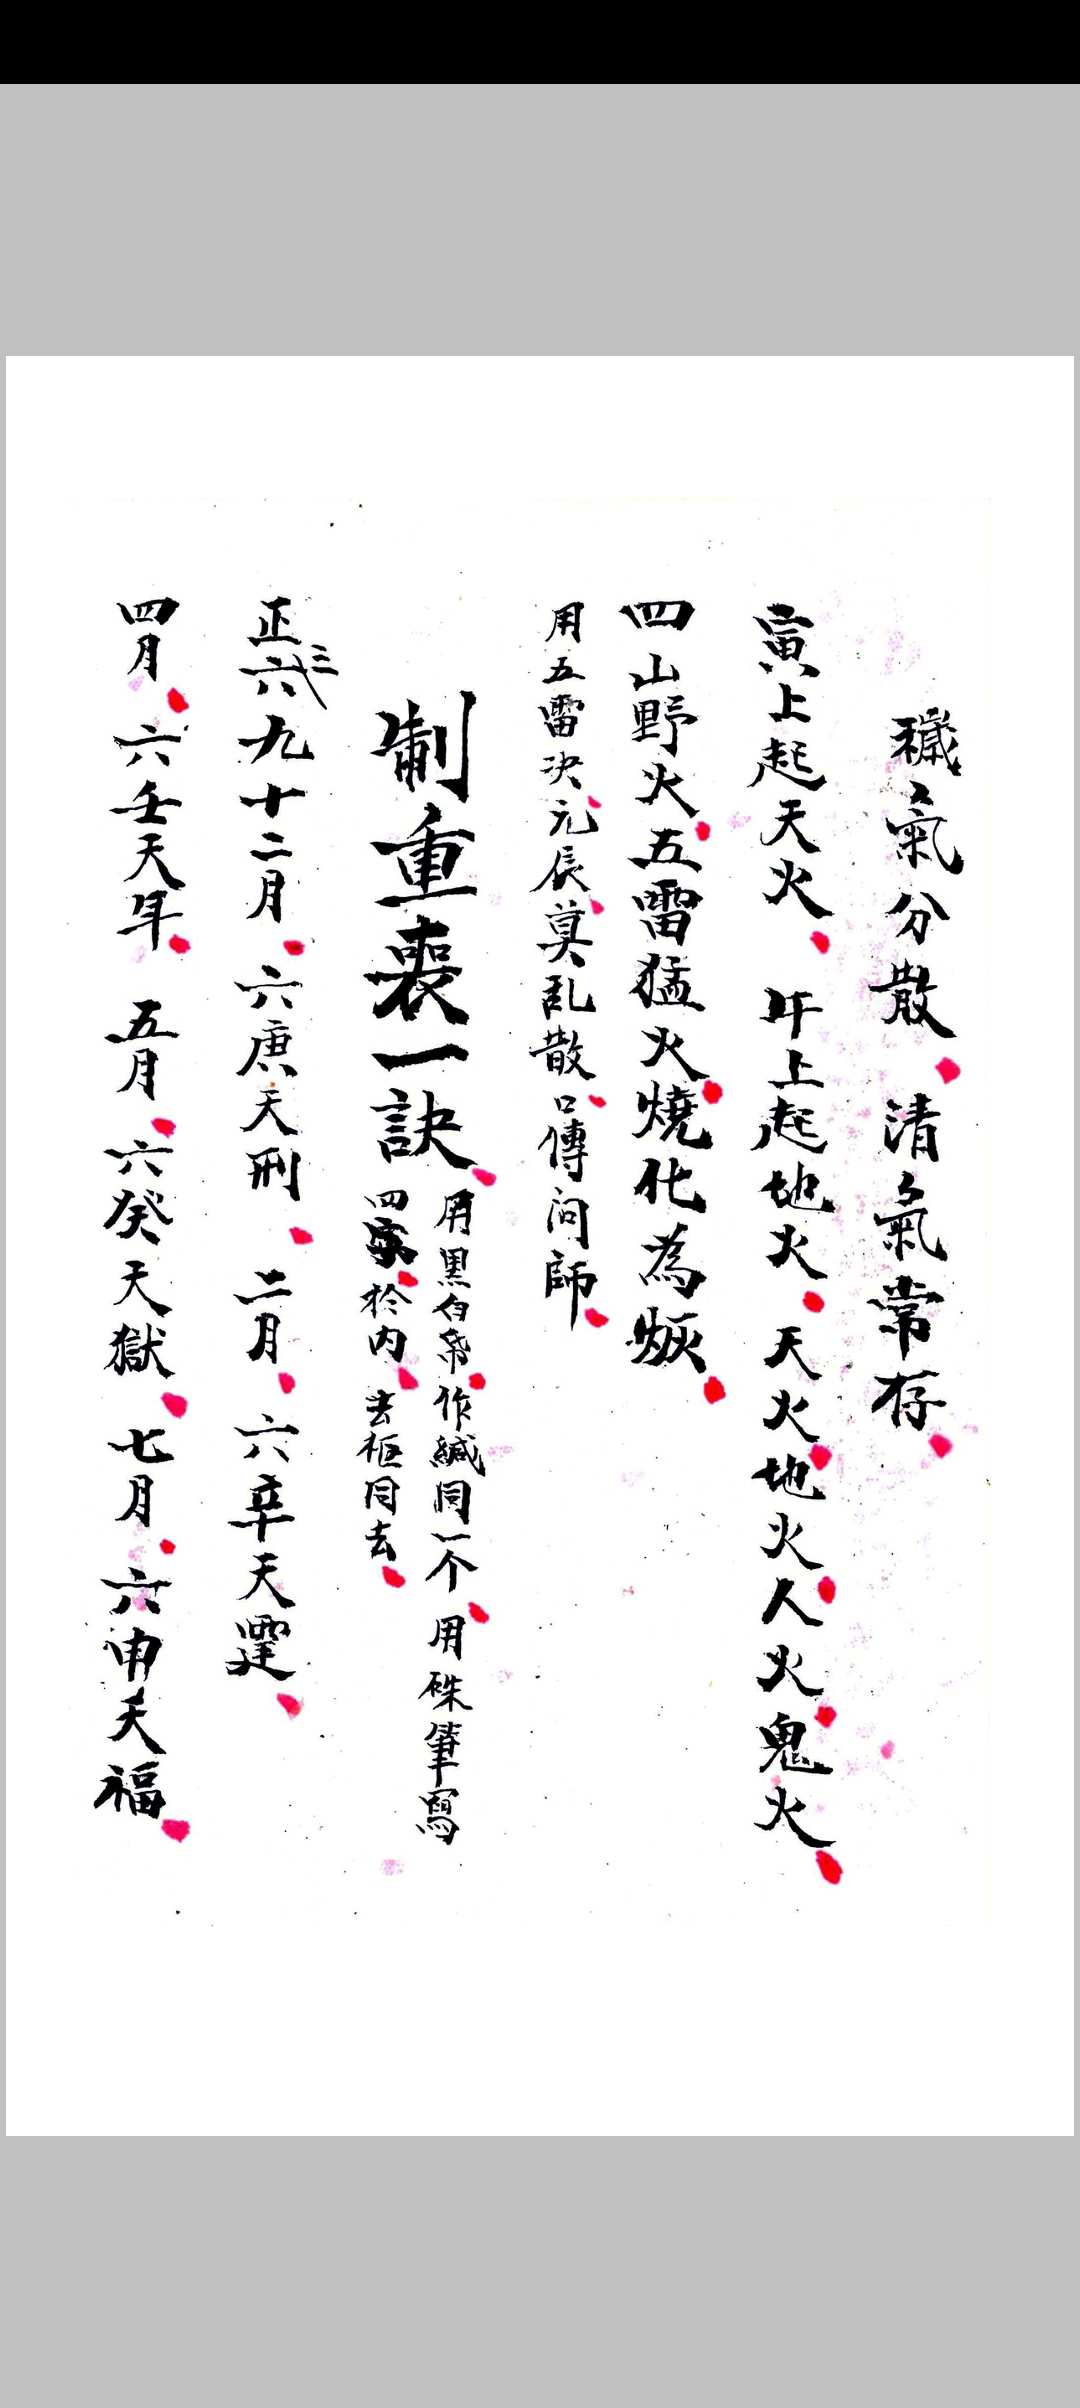 穢氣分散 清氣常存
寅上起天火 午上起地火 天火地火人火鬼火
四山野火 五雷猛火燒化為烣
用五雷決元辰莫乱散口傳问師
制重喪一訣
用黑白帋作緘同一个 用硃筆寫
四字於内 去柩同去
正三六九十二月 六庚天刑 二月 六辛天霆
四月 六壬天年 五月 六癸天獄 七月 六甲天福